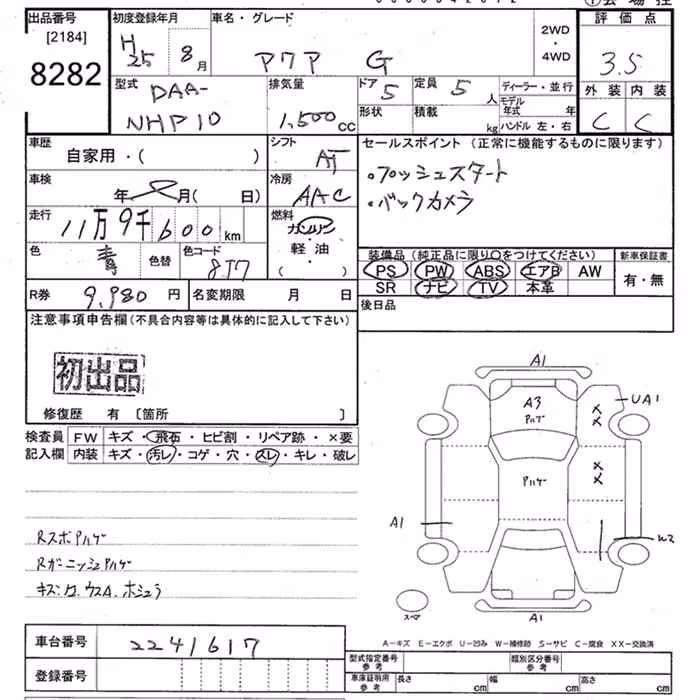 出品番号
[2184]
8282
初度登録年月
H25 8月
車名・グレード
アクア G
2WD
・
4WD
評価点
3.5
外装 内装
C C
型式
DAA-
NHP10
排気量
1,500cc
ドア
5
定員
5人
形状
積載
kg
ディーラー・並行
モデル年式 年
ハンドル 左・右
車歴
自家用・( )
シフト
AT
車検
年 月( 日)
冷房
AAC
走行
11万9千600km
燃料
ガソリン
・
軽・油
( )
色
青
色替
色コード
8J7
R券
9,980円
名変期限 月 日
セールスポイント(正常に機能するものに限ります)
・プッシュスタート
・バックカメラ
装備品(純正品に限り○をつけてください)
PS PW ABS エアB AW
SR ナビ TV 本革
新車保証書
有・無
後日品
注意事項申告欄(不具合内容等は具体的に記入して下さい)
初出品
修復歴 有 〔箇所 〕
検査員
記入欄
FW キズ・飛石・ヒビ割・リペア跡・×要
内装 キズ・汚レ・コゲ・穴・スレ・キレ・破レ
Rスポアハゲ
Rガーニッシュアハゲ
A1
A3
アハゲ
UA1
アハゲ
A1
W2
A1
スペア
A−キズ E−エクボ U−凹み W−補修跡 S−サビ C−腐食 XX−交換済
車台番号
2241617
登録番号
型式指定番号
参考
類別区分番号
参考
車庫証明用
参考
長さ cm
幅 cm
高さ cm